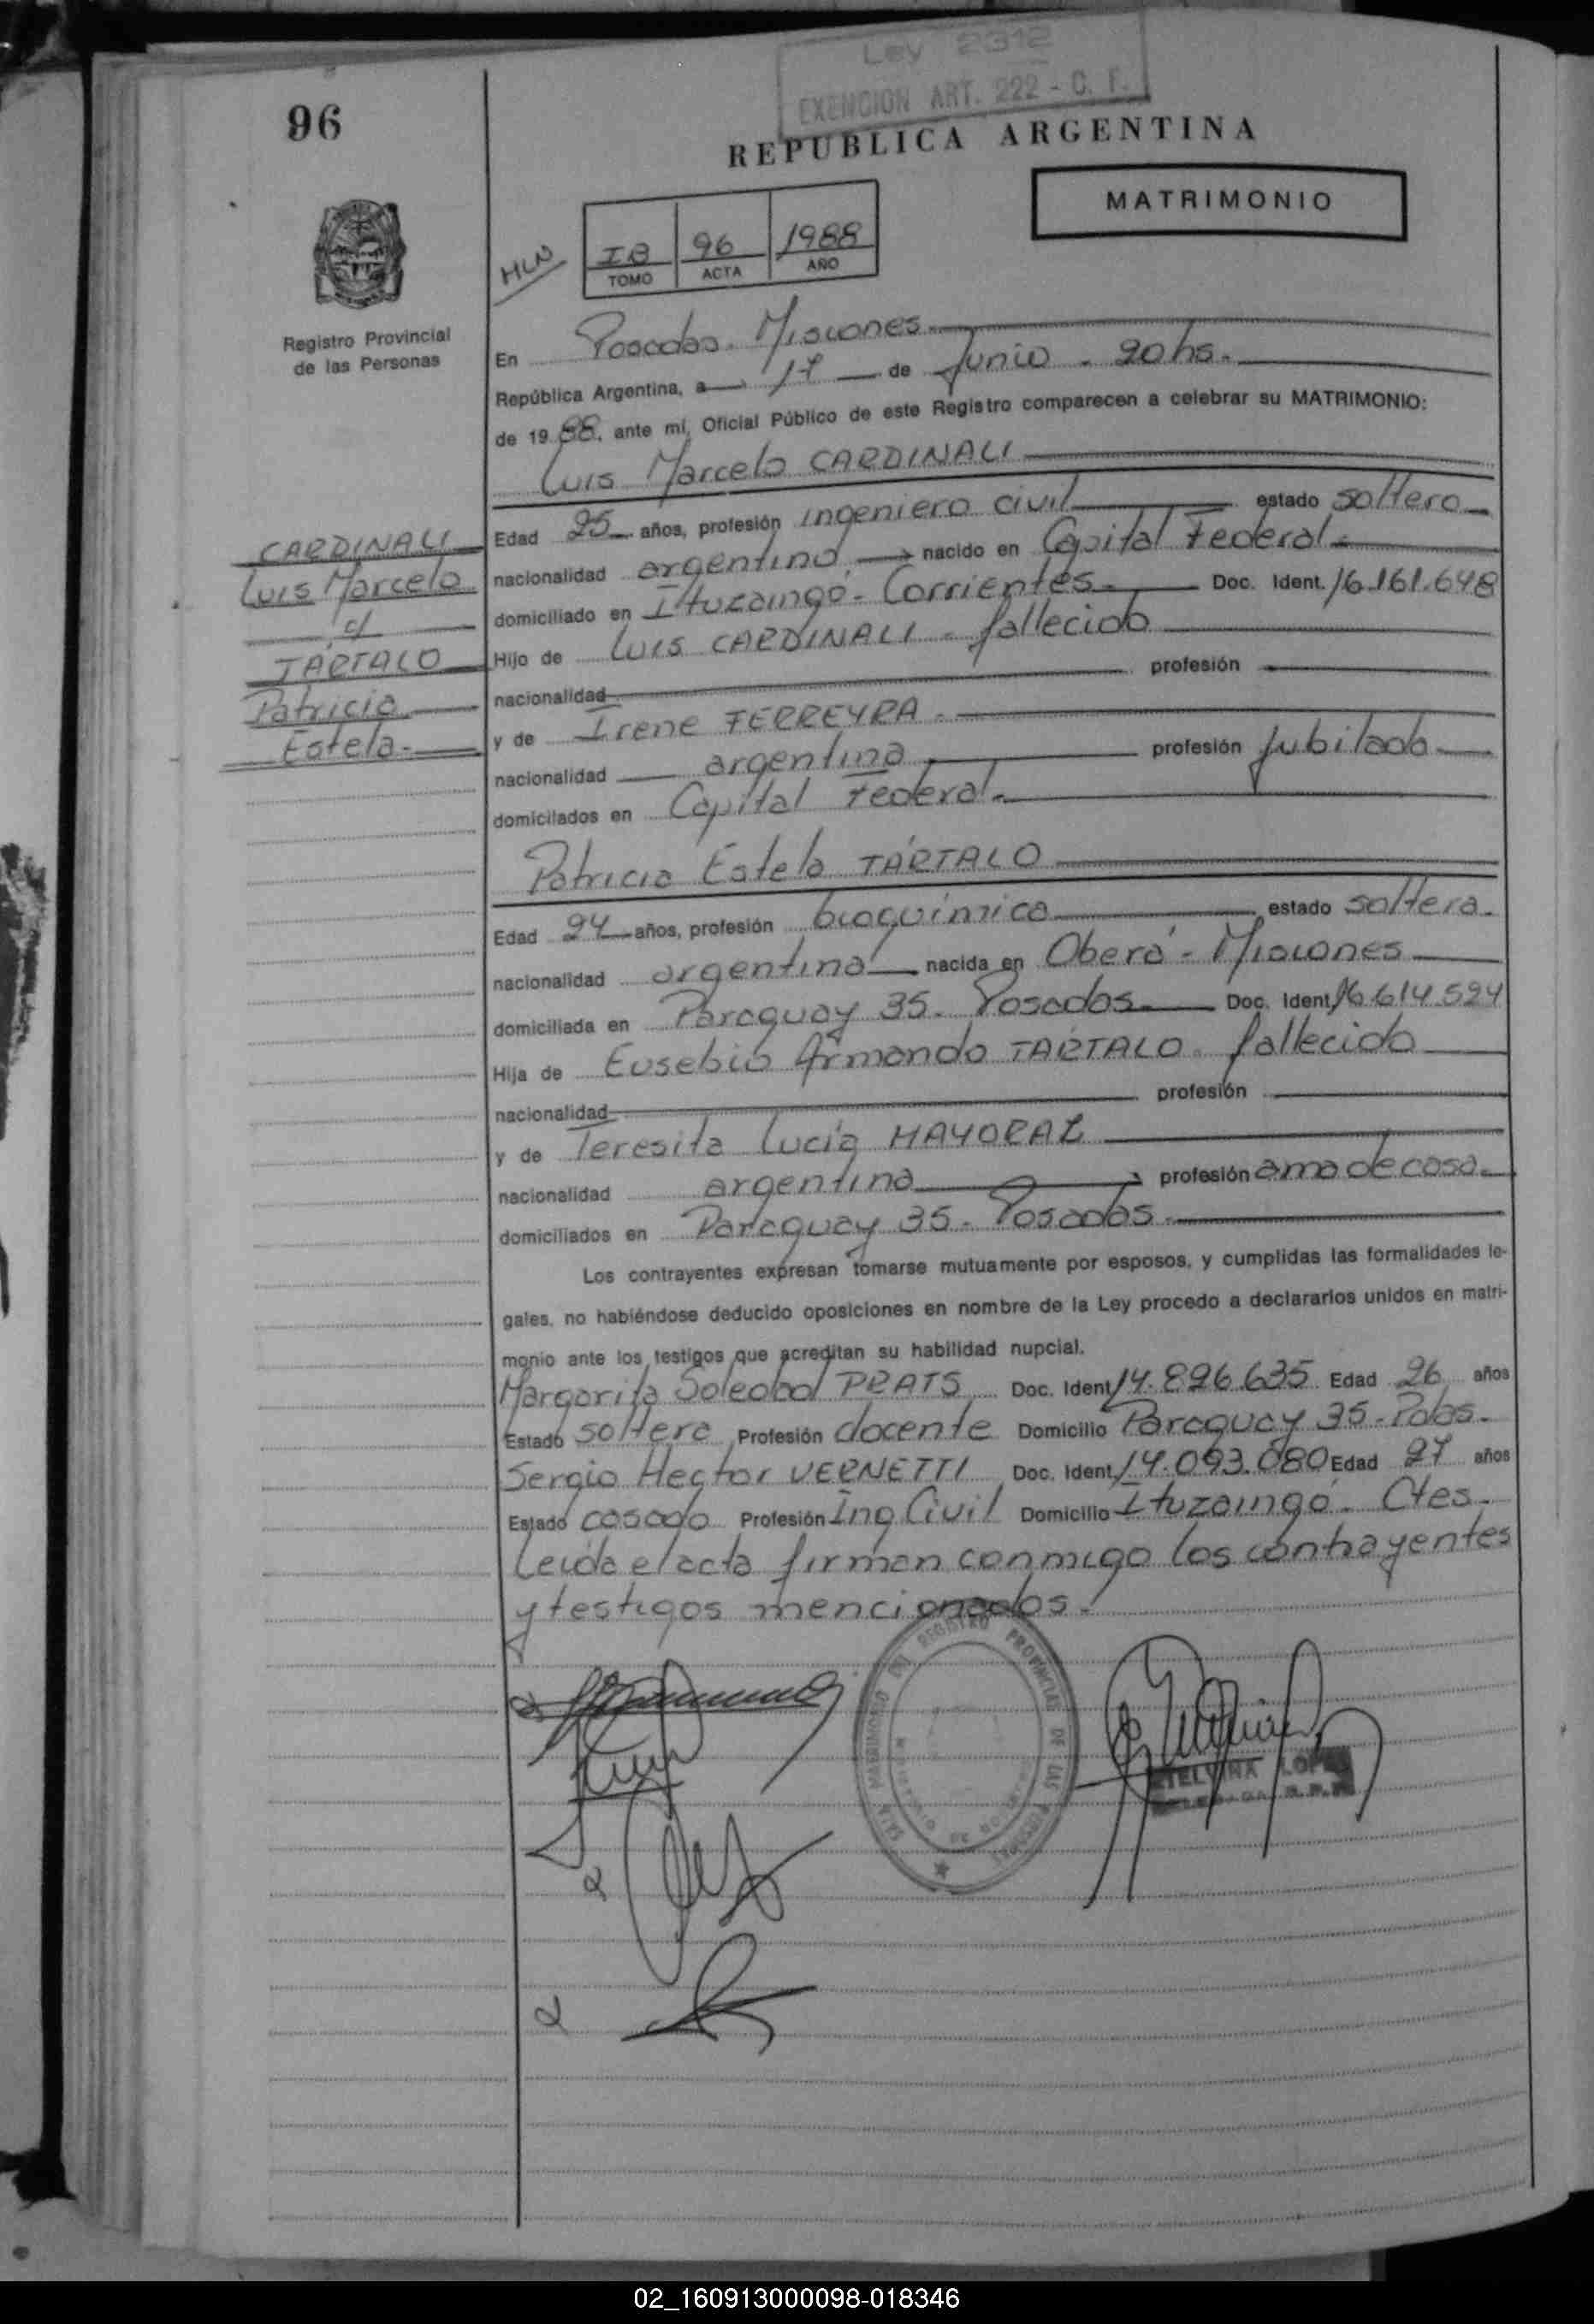 Ley 2312
EXENCION ART. 222 - C. F.
96
REPUBLICA ARGENTINA
MATRIMONIO
HLN
IB 96 1988
TOMO ACTA AÑO
Registro Provincial
de las Personas
En Posadas. Misiones.
República Argentina, a 17 de Junio - 20hs.
de 1988, ante mí, Oficial Público de este Registro comparecen a celebrar su MATRIMONIO:
Luis Marcelo CARDINALI
Edad 25 años, profesión ingeniero civil estado soltero
nacionalidad argentino, nacido en Capital Federal
domiciliado en Ituzaingó - Corrientes. Doc. Ident. 16.161.648
Hijo de Luis CARDINALI - fallecido
nacionalidad profesión
y de Irene FERREYRA.
nacionalidad argentina profesión jubilada
domicilados en Capital Federal.
CARDINALI
Luis Marcelo
c/
TÁRTALO
Patricia
Estela.
Patricia Estela TÁRTALO
Edad 24 años, profesión bioquímica estado soltera.
nacionalidad argentina nacida en Oberá - Misiones
domiciliada en Paraguay 35. Posadas. Doc. Ident. 16.614.524
Hija de Eusebio Armando TÁRTALO. fallecido
nacionalidad profesión
y de Teresita Lucía MAYORAL
nacionalidad argentina profesión ama de casa.
domiciliados en Paraguay 35. Posadas.
Los contrayentes expresan tomarse mutuamente por esposos, y cumplidas las formalidades le-
gales, no habiéndose deducido oposiciones en nombre de la Ley procedo a declararlos unidos en matri-
monio ante los testigos que acreditan su habilidad nupcial.
Margarita Soledad PRATS Doc. Ident. 14.896.635 Edad 26 años
Estado soltera Profesión docente Domicilio Paraguay 35 - Pdas.
Sergio Hector VERNETTI Doc. Ident. 14.093.080 Edad 27 años
Estado casado Profesión Ing Civil Domicilio Ituzaingó. Ctes.
Leida el acta firman conmigo los contrayentes
y testigos mencionados.
REGISTRO PROVINCIAL DE LAS PERSONAS
ETELVINA LOPEZ
02_160913000098-018346